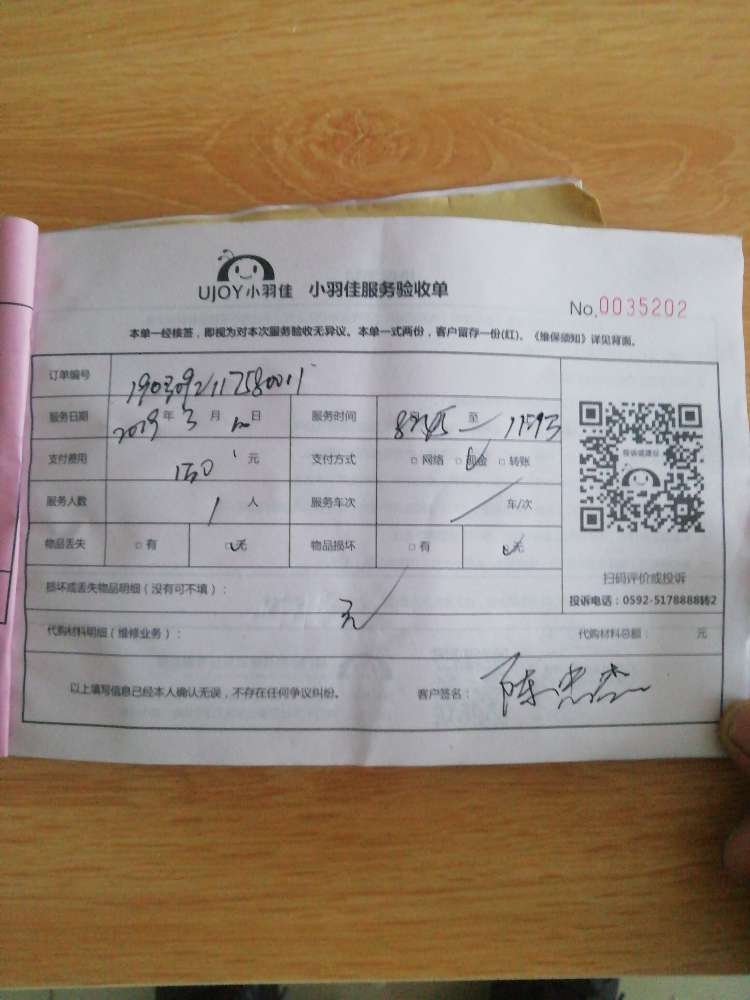 UJOY小羽佳 小羽佳服务验收单
No.0035202
本单一经接签，即视为对本次服务验收无异议。本单一式两份，客户留存一份(红)。《维保须知》详见背面。
订单编号
服务日期 2019年3月 日 服务时间 至
支付费用 150元 支付方式 □网络 □现金 □转账
服务人数 1人 服务车次 车/次
物品丢失 □有 □无 物品损坏 □有 □无
投诉或建议
扫码评价或投诉
投诉电话：0592-5178888转2
损坏或丢失物品明细（没有可不填）：
无
代购材料明细（维修业务）： 代购材料总额： 元
以上填写信息已经本人确认无误，不存在任何争议纠纷。 客户签名：陈忠杰